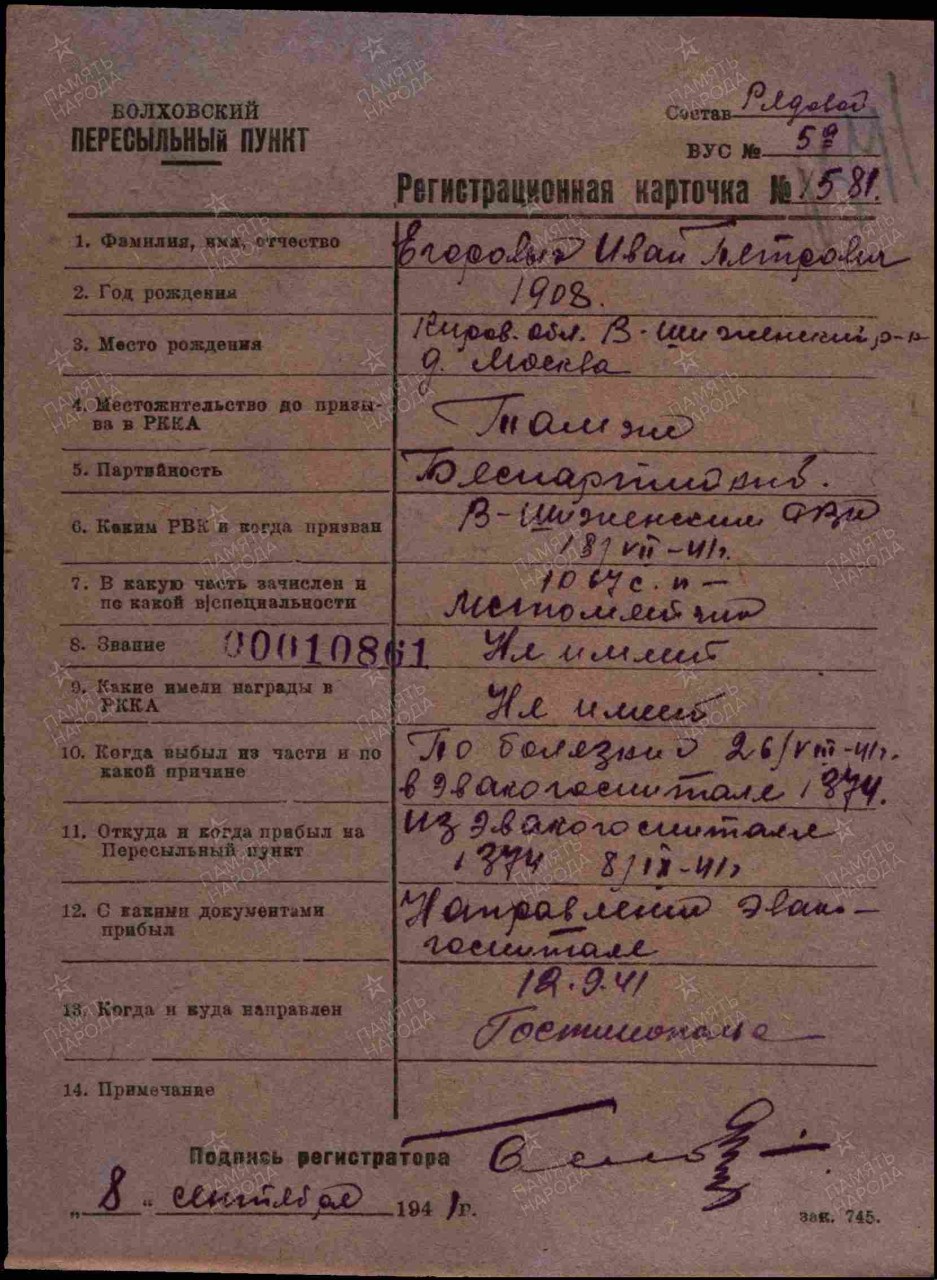 ВОЛХОВСКИЙ
ПЕРЕСЫЛЬНЫЙ ПУНКТ
Состав Рядовой
ВУС № 5а
Регистрационная карточка № 581.
1. Фамилия, имя, отчество
Иван Петрович
2. Год рождения
1908.
3. Место рождения
Киров. обл. В-Шиженский р-н
д. Москва
4. Местожительство до призыва в РККА
Там же
5. Партийность
Беспартийный.
6. Каким РВК и когда призван
В-Шиженским РВК
18/VII-41г.
7. В какую часть зачислен и
по какой в|специальности
1067 с. п –
8. Звание
00010861
Не имеет
9. Какие имели награды в
РККА
Не имеет
10. Когда выбыл из части и по
какой причине
По болезни 26/VIII-41г.
в эвакогоспиталь 1374.
11. Откуда и когда прибыл на
Пересыльный пункт
из эвакогоспиталя
1374 8/IX-41г
12. С какими документами
прибыл
Направление эвако-
госпиталя
13. Когда и куда направлен
12.9.41
Гостинополье
14. Примечание
Подпись регистратора
„8“ сентября 1941г.
зак. 745.
ПАМЯТЬ
НАРОДА